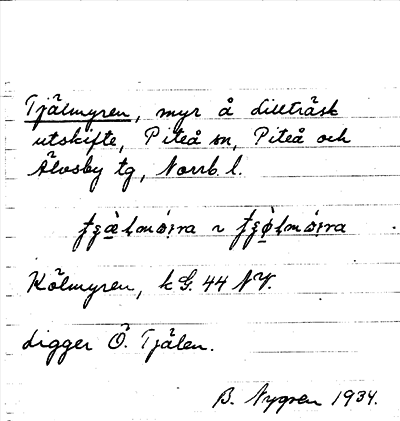 Tjälmyren, myr å Lillträsk
utskifte, Piteå sn, Piteå och
Älvsby tg, Norrb. l.
Kölmyren, k G. 44 NV.
Ligger Ö. Tjälen.
B. Nygren 1934.